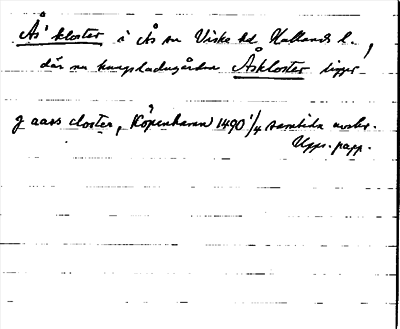 Ås' kloster i Ås sn Viske hd Hallands l.,
där nu kungsladugården Åskloster ligger
J aars closter, Köpenhamn 1490 1/4 samtida avskr.
Upps. papp.